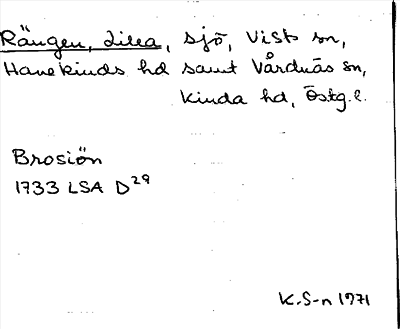 Rängen, Lilla, sjö, Vists sn,
Hanekinds hd samt Vårdnäs sn,
Kinda hd, Östg.l.
Brosiön
1733 LSA D29
K.S-n 1971